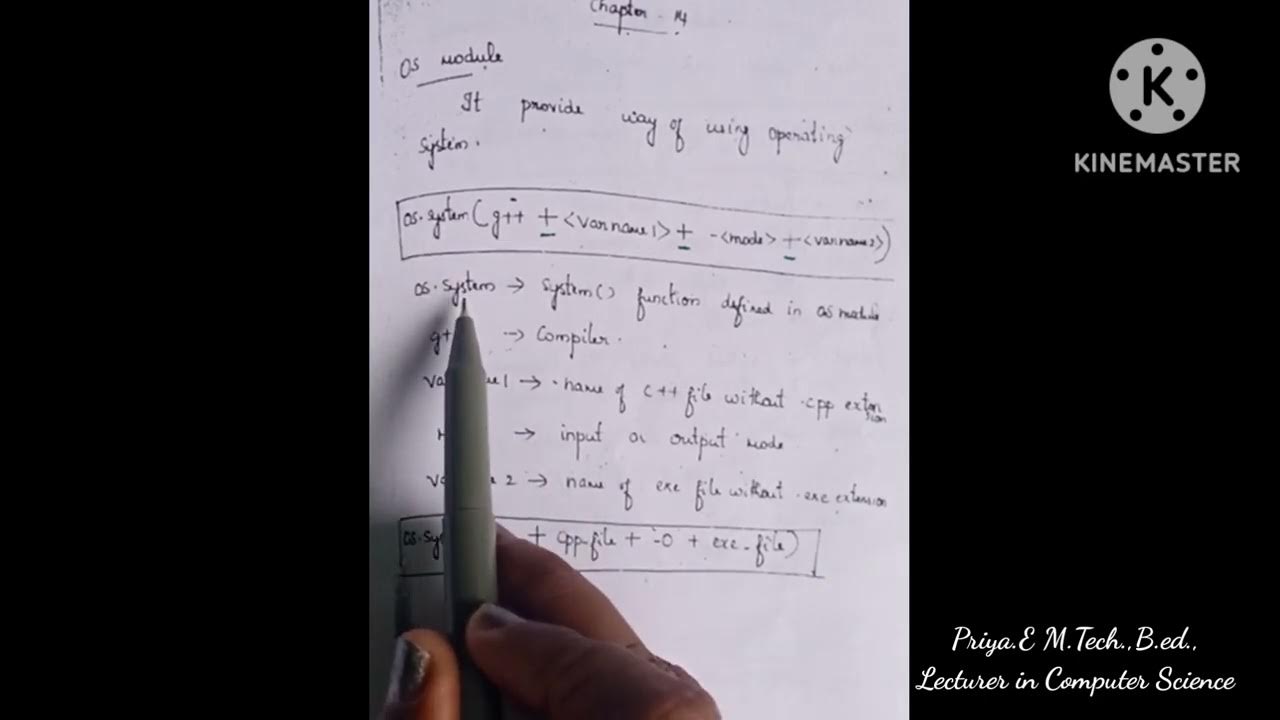 Chapter - 14
OS module
It provide way of using operating
system.
os.system(g++ + <varname1> + -<mode> + <varname2>)
os.system → system() function defined in os module
g+ → Compiler.
va 1 → name of C++ file without .cpp exten
sion
→ input or output mode
va 2 → name of exe file without .exe extension
os.sy + cpp_file + -o + exe_file)
K
KINEMASTER
Priya.E M.Tech.,B.ed.,
Lecturer in Computer Science